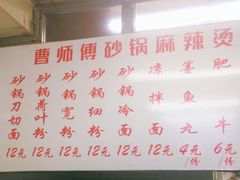 曹师傅砂锅麻辣烫
砂锅刀切面 12元
砂锅荷叶粉 12元
砂锅宽粉 12元
砂锅细粉 12元
砂锅冷面 12元
凉拌面 12元
墨鱼丸 4元/份
肥牛 6元/份